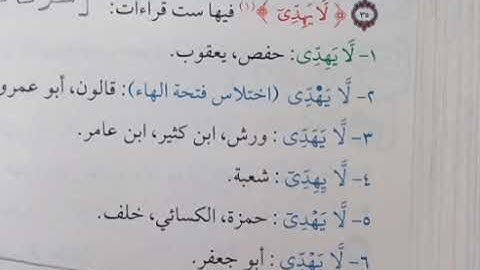 ٣٥ ﴿ لَّا يَهِدِّىٓ ﴾ (١) فيها ست قراءات:
١- لَّا يَهِدِّى: حفص، يعقوب.
٢- لَّا يَهَدِّى (اختلاس فتحة الهاء): قالون، أبو عمرو
٣- لَّا يَهَدِّى: ورش، ابن كثير، ابن عامر.
٤- لَّا يِهِدِّىٓ: شعبة.
٥- لَّا يَهْدِىٓ: حمزة، الكسائي، خلف.
٦- لَّا يَهْدِّىٓ: أبو جعفر.